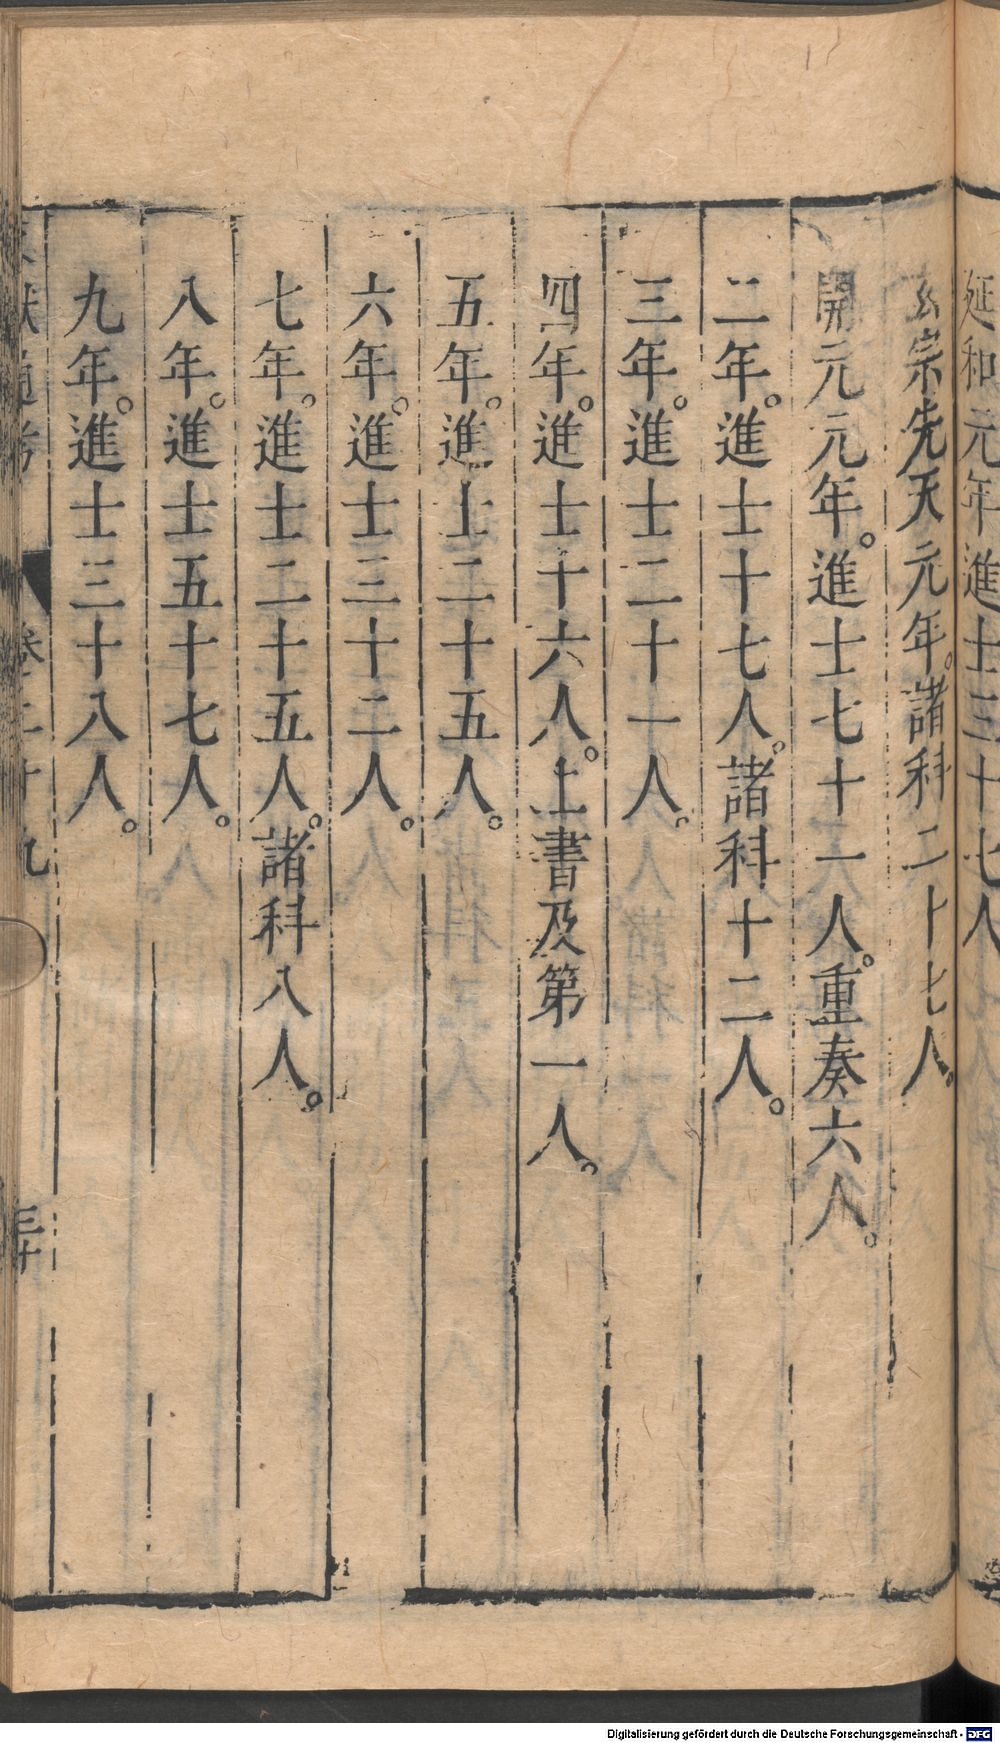 延和元年進士三十七人
玄宗先天元年。諸科二十七人。
開元元年。進士七十一人。重奏六人。
二年。進士十七人。諸科十二人。
三年。進士二十一人。
四年。進士十六人。上書及第一人。
五年。進士二十五人。
六年。進士三十二人。
七年。進士二十五人。諸科八人。
八年。進士五十七人。
九年。進士三十八人。
獻通考 卷二十九 三十
Digitalisierung gefördert durch die Deutsche Forschungsgemeinschaft - DFG